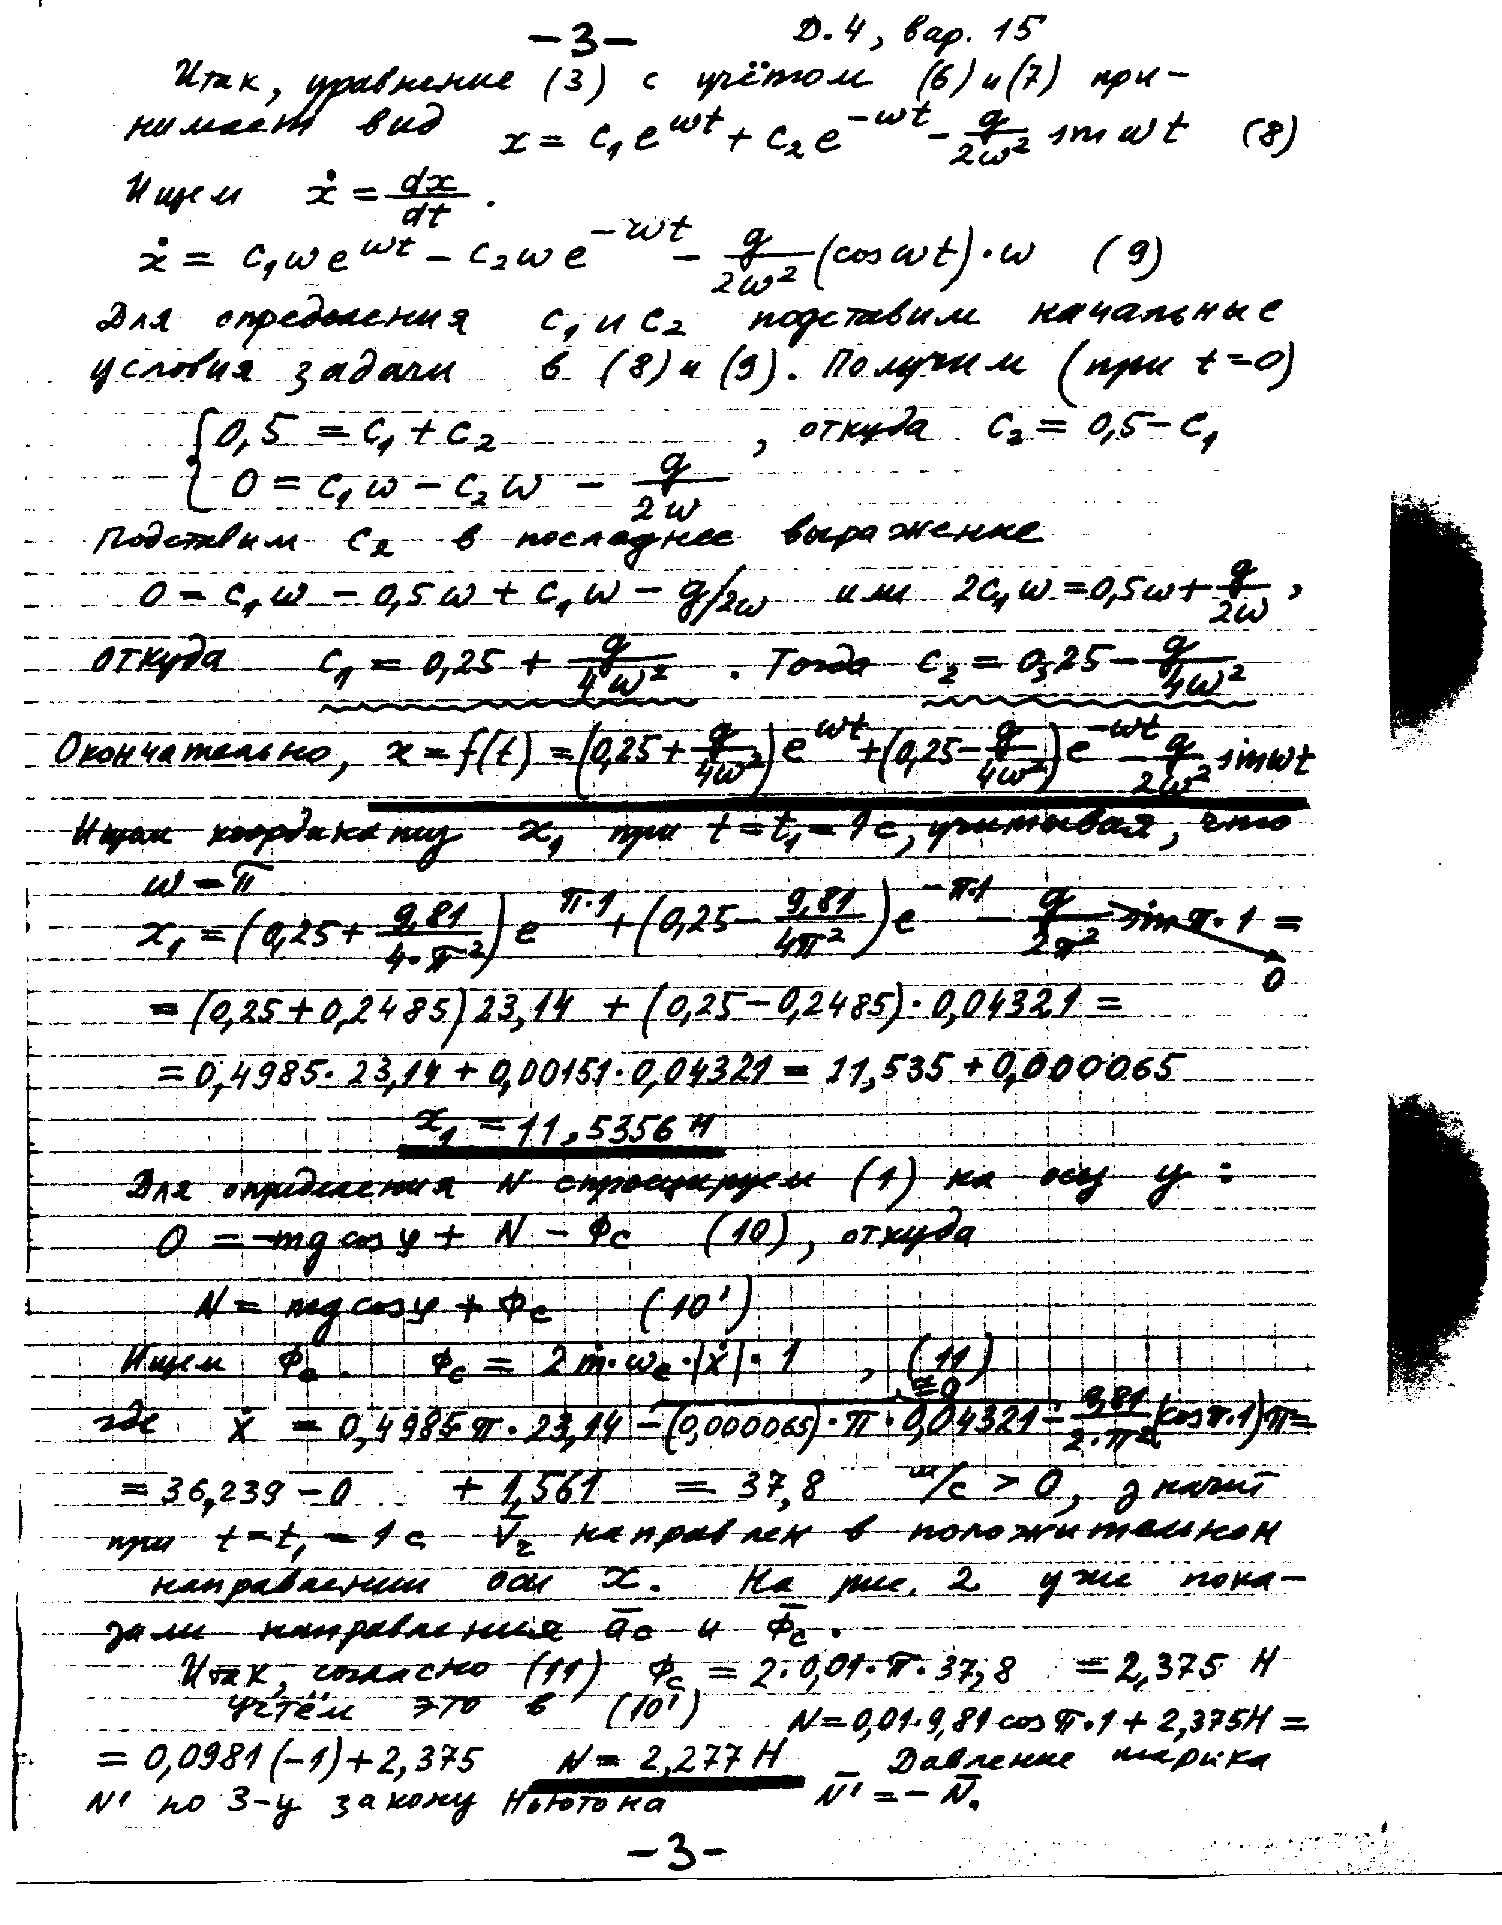 -3- Д.4, вар. 15
Итак, уравнение (3) с учётом (6) и (7) при-
нимает вид x = C₁e^{ωt} + C₂e^{-ωt} - g/2ω² sin ωt (8)
Ищем ẋ = dx/dt.
ẋ = C₁ωe^{ωt} - C₂ωe^{-ωt} - g/2ω² (cos ωt)·ω (9)
Для определения C₁ и C₂ подставим начальные
условия задачи в (8) и (9). Получим (при t=0)
{ 0,5 = C₁ + C₂ , откуда C₂ = 0,5 - C₁
0 = C₁ω - C₂ω - g/2ω
Подставим C₂ в последнее выражение
0 = C₁ω - 0,5ω + C₁ω - g/2ω или 2C₁ω = 0,5ω + g/2ω,
откуда C₁ = 0,25 + g/4ω². Тогда C₂ = 0,25 - g/4ω²
Окончательно, x = f(t) = (0,25 + g/4ω²)e^{ωt} + (0,25 - g/4ω²)e^{-ωt} - g/2ω² sin ωt
Ищем координату x₁ при t = t₁ = 1 с, учитывая, что
ω = π
x₁ = (0,25 + 9,81/4·π²)e^{π·1} + (0,25 - 9,81/4π²)e^{-π·1} - g/2π² sin π·1 =
0
= (0,25 + 0,2485) 23,14 + (0,25 - 0,2485)·0,04321 =
= 0,4985·23,14 + 0,00151·0,04321 = 11,535 + 0,000065
x₁ = 11,5356 Н
Для определения N спроецируем (1) на осу y:
0 = -mg cos φ + N - Φc (10), откуда
N = mg cos φ + Φc (10')
Ищем Φc. Φc = 2m·ωe·|ẋ|·1 , (11)
≈0
где ẋ = 0,4985·π·23,14 - (0,000065)·π·0,04321 - 9,81/2·π² (cos π·1)π =
= 36,239 - 0 + 1,561 = 37,8 м/с > 0, значит
при t = t₁ = 1 с V̄r направлен в положительном
направлении оси x. На рис. 2 уже пока-
зали направления āc и Φ̄c.
Итак, согласно (11) Φc = 2·0,01·π·37,8 = 2,375 Н
Учтём это в (10') N = 0,01·9,81 cos π·1 + 2,375Н =
= 0,0981 (-1) + 2,375 N = 2,277 Н Давление шарика
N' по 3-у закону Ньютона N̄' = - N̄.
-3-